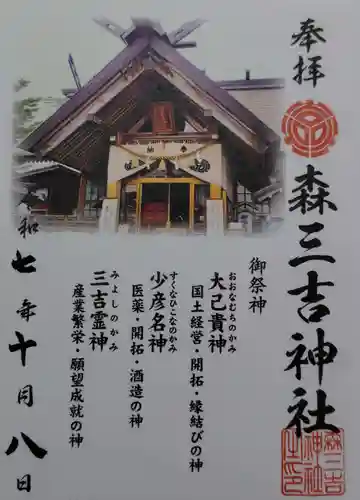 奉拝
森三吉神社
御祭神
おおなむちのかみ
大己貴神
国土経営・開拓・縁結びの神
すくなひこなのかみ
少彦名神
医薬・開拓・酒造の神
みよしのかみ
三吉霊神
産業繁栄・願望成就の神
令和七年十月八日
森三吉
神社
之印